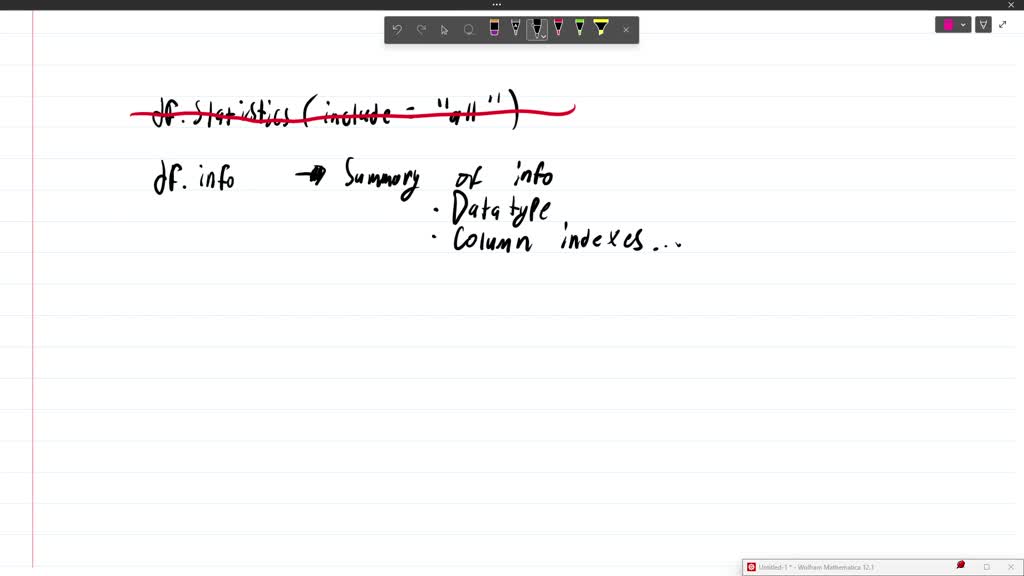 df.Statistics (include = "all")
df. info → Summary of info
• Datatype
• Column indexes...
Untitled-1 * - Wolfram Mathematica 12.1